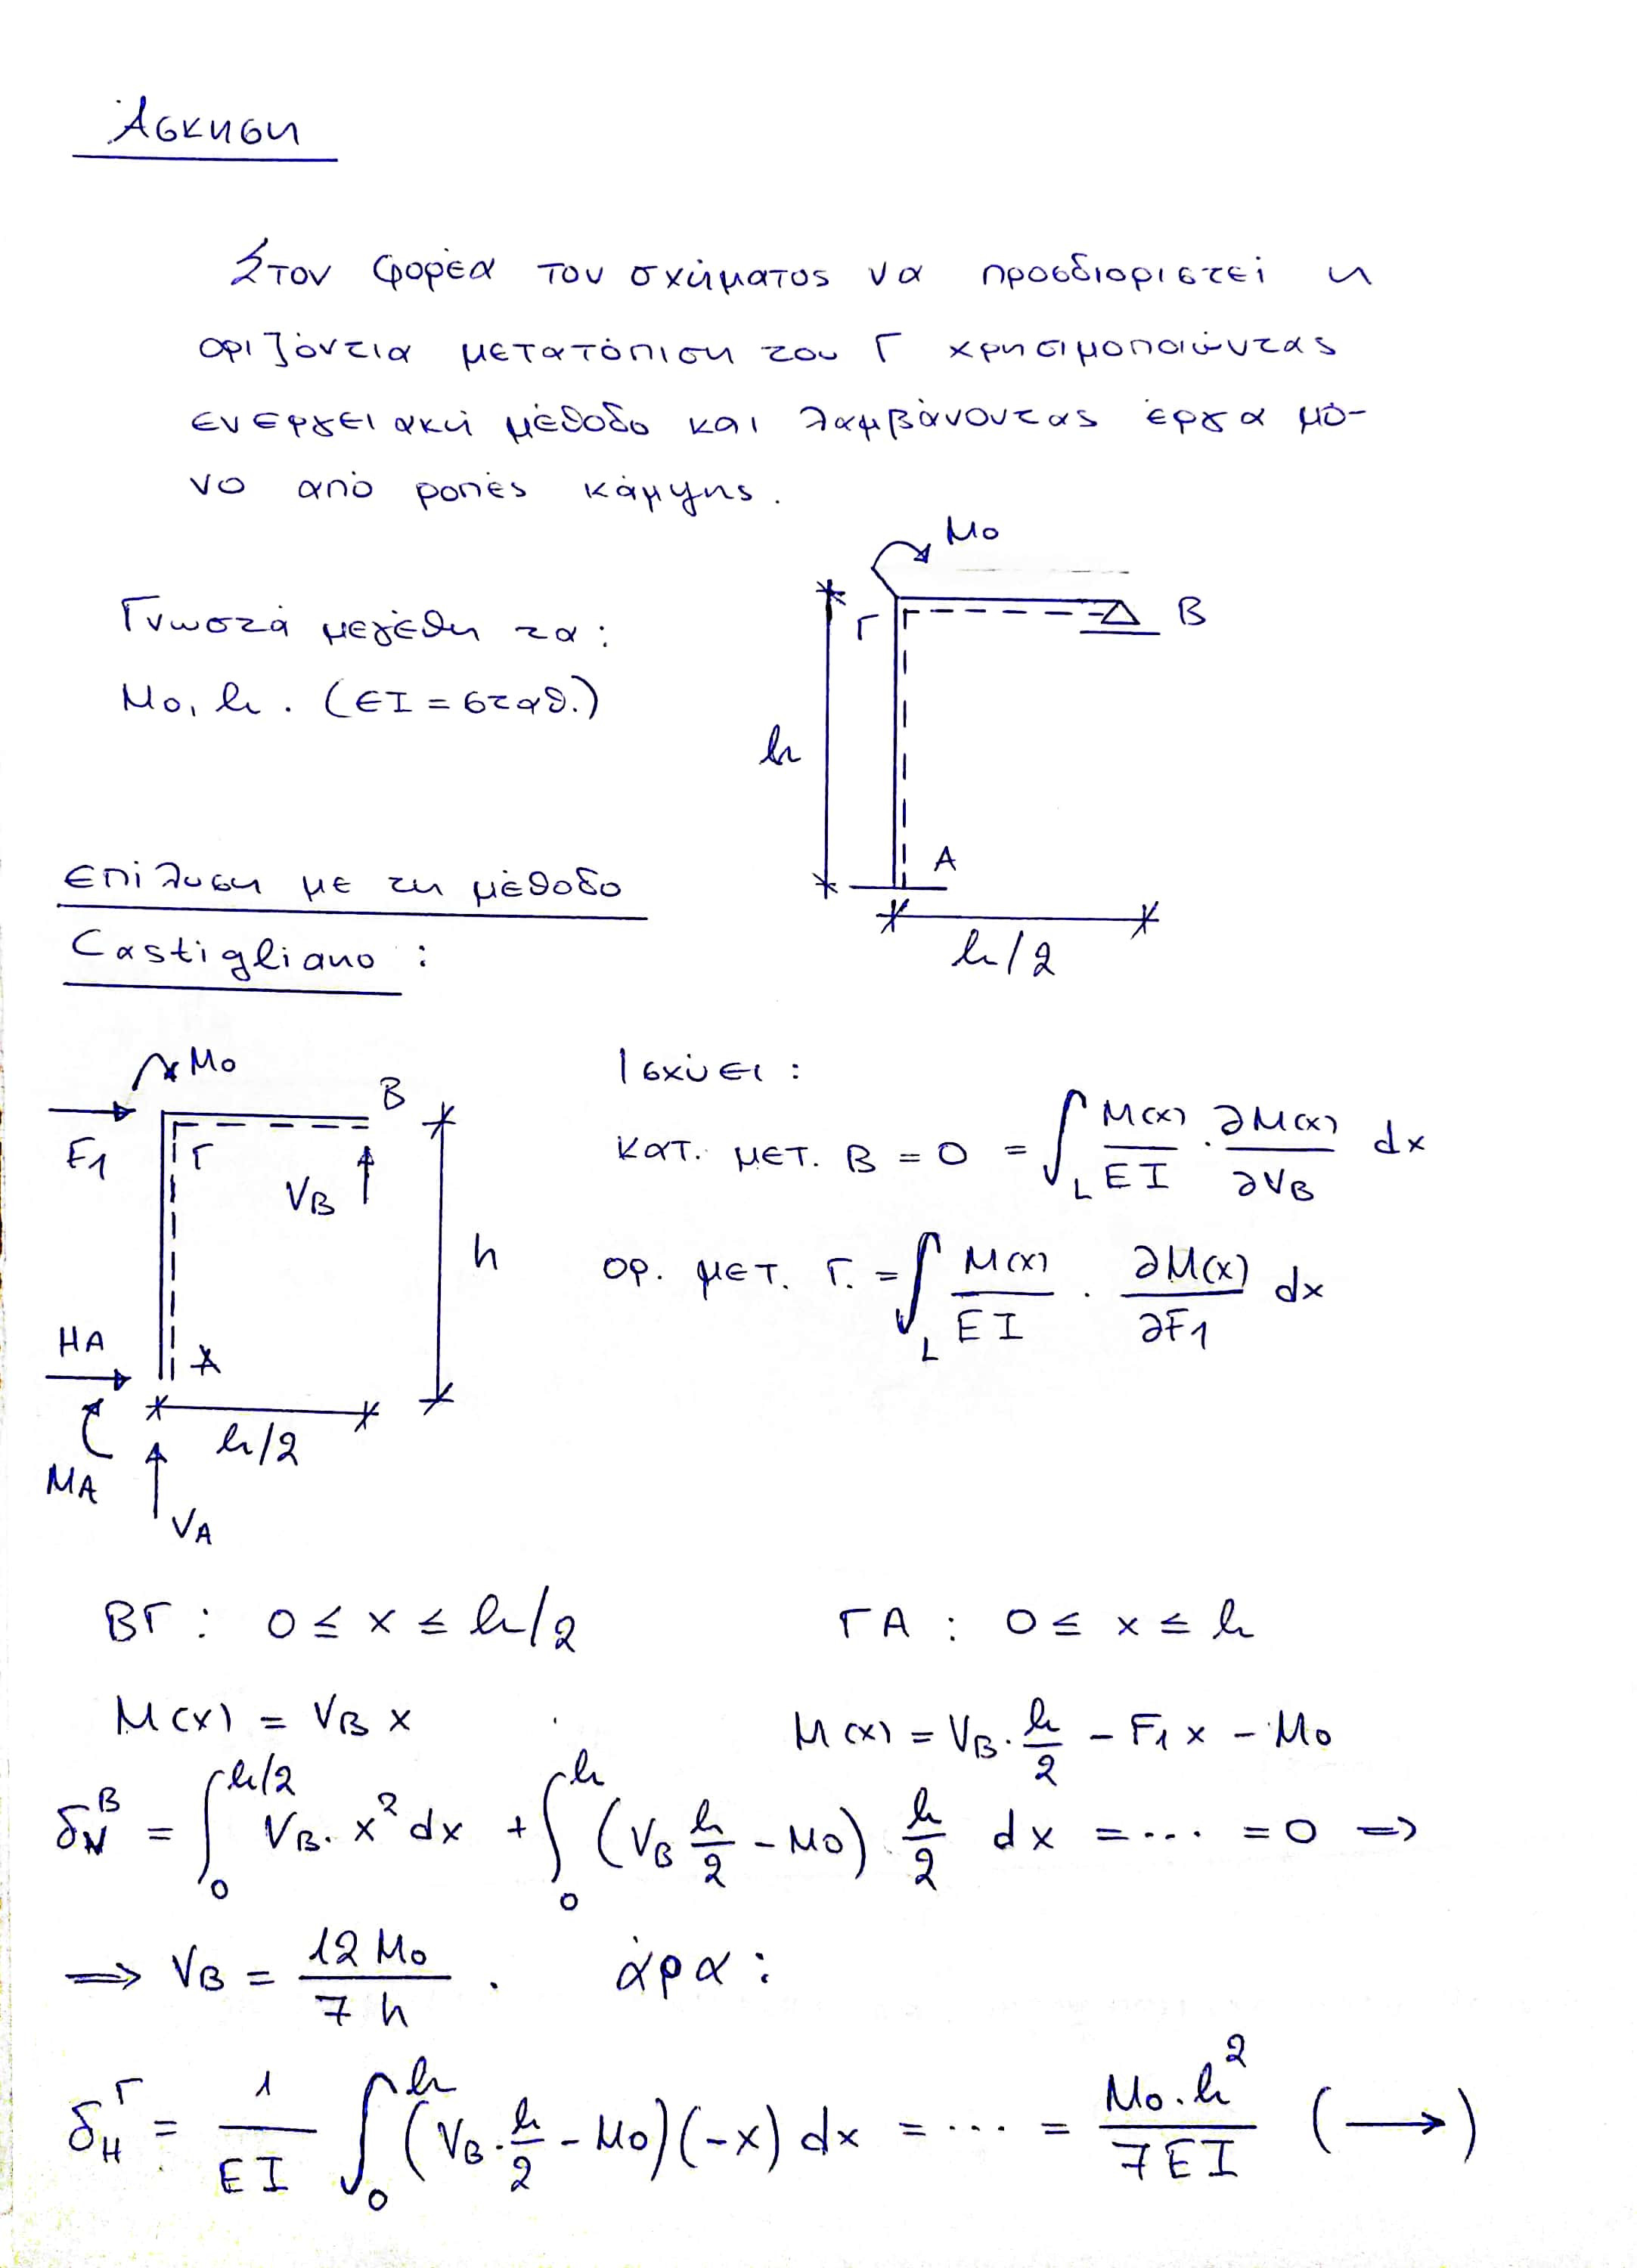 Άσκηση
Στον φορέα του σχήματος να προσδιοριστεί η
οριζόντια μετατόπιση του Γ χρησιμοποιώντας
ενεργειακή μέθοδο και λαμβάνοντας έργα μό-
νο από ροπές κάμψης.
Μο
Γνωστά μεγέθη τα:
Μο, h. (EI = σταθ.)
Γ
B
h
A
h/2
Επίλυση με τη μέθοδο
Castigliano :
Μο
F1
Γ
B
VB
h
HA
A
MA
h/2
VA
Ισχύει :
κατ. μετ. B = 0 = ∫L M(x)/EI · ∂M(x)/∂VB dx
ορ. μετ. Γ. = ∫L M(x)/EI · ∂M(x)/∂F1 dx
ΒΓ : 0 ≤ x ≤ h/2
ΓΑ : 0 ≤ x ≤ h
M(x) = VB x
M(x) = VB · h/2 − F1 x − Mo
δV^B = ∫0^h/2 VB · x² dx + ∫0^h (VB h/2 − Mo) h/2 dx = ... = 0 ⇒
⇒ VB = 12 Mo / 7h . άρα :
δH^Γ = 1/EI ∫0^h (VB · h/2 − Mo)(−x) dx = ... = Mo · h² / 7EI (→)